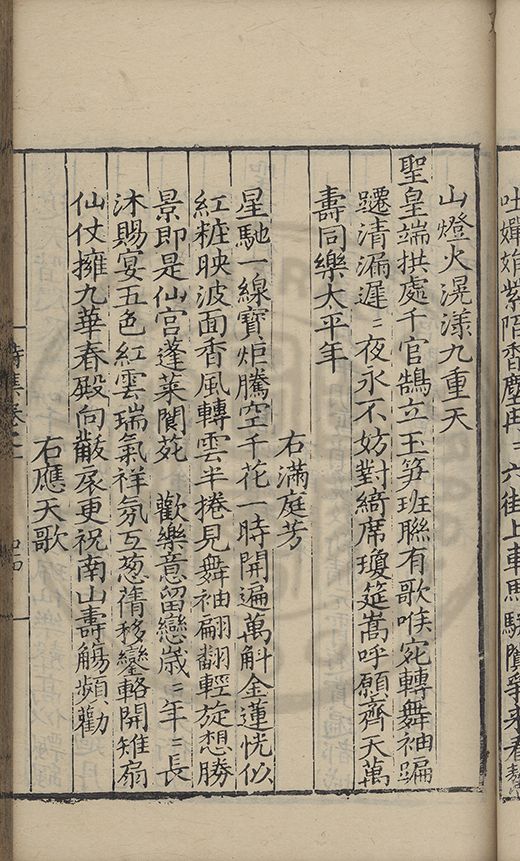 吐嬋娟紫陌香塵冉〻六街上車馬駢闐爭來看鰲
山燈火滉漾九重天
聖皇端拱處千官鵠立玉笋班聯有歌喉宛轉舞袖蹁
躚清漏遲〻夜永不妨對綺席瓊筵嵩呼願齊天萬
壽同樂大平年
右滿庭芳
星馳一線寶炬騰空千花一時開遍萬斛金蓮恍似
紅粧映波面香風轉雲半捲見舞袖翩翻輕旋想勝
景即是仙宮蓬萊閬苑　歡樂意留戀歲〻年〻長
沐賜宴五色紅雲瑞氣祥氛互葱蒨移鑾輅開雉扇
仙仗擁九華春殿向黻扆更祝南山壽觴頻勸
右應天歌